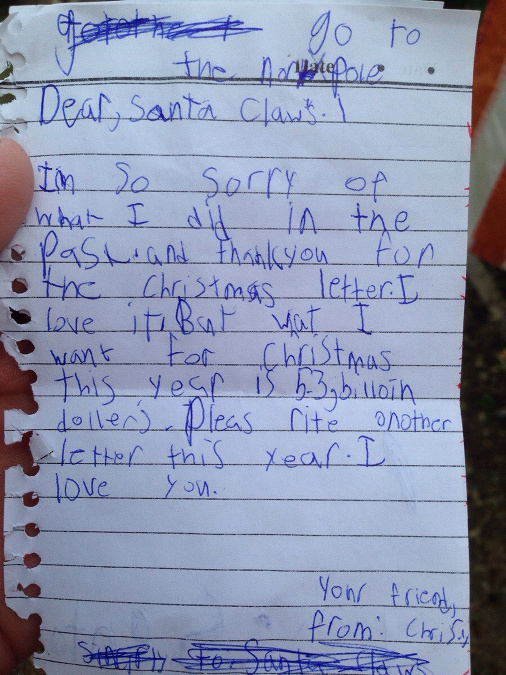 go to
the nor pole
Date
Dear, Santa Claws.
Im so sorry of
what I did in the
Past. and thankyou for
the christmas letter. I
love it, But wat I
want for Christmas
this year is 53gbilloin
doller). Pleas rite onother
letter this year. I
love you.
Your friend,
from: Chris
to Santa Claws